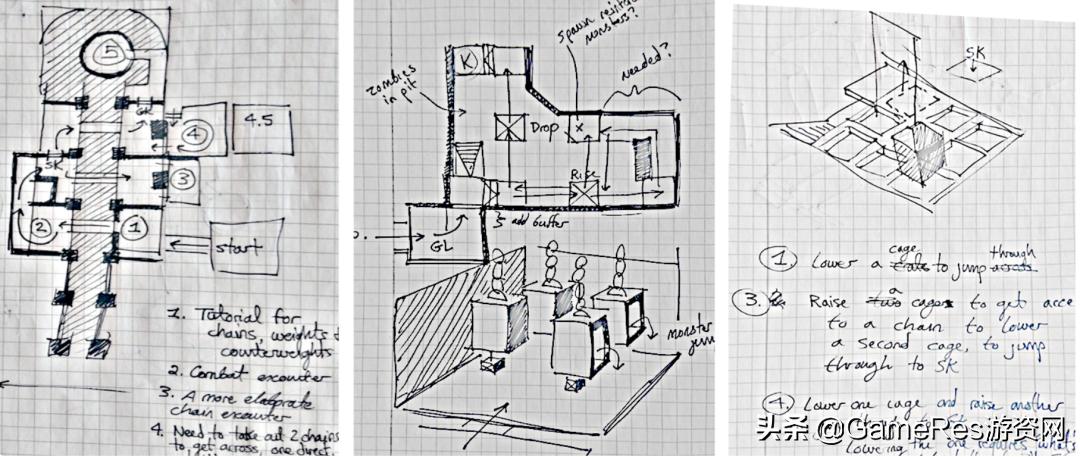 5
GL
4
4.5
SK
3
2
1
start
1. Tutorial for
chains, weights
counterweights
2. Combat encounter
3. A more elaborate
chain encounter
4. Need to take out 2 chains
to get across, one direct.
spawn
monsters?
needed?
K
zombies
in pit
Drop
x
Rise
add buffer
GL
monster
jump
SK
1 Lower a cage to jump through
3. Raise a cage to get acce
to a chain to lower
a second cage, to jump
through to SK
4. Lower one cage and raise another
Lowering the one requires what's
头条 @GameRes游资网